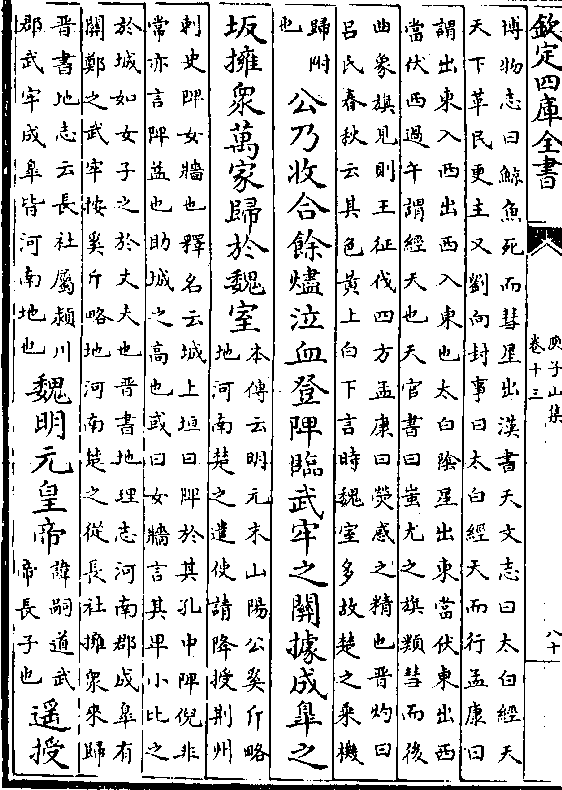 欽定四庫全書
庾子山集
卷十三
八十
博物志曰鯨魚死而彗星出漢書天文志曰太白經天
天下革民更主又劉向封事曰太白經天而行孟康曰
謂出東入西出西入東也太白陰星出東當伏東出西
當伏西過午謂經天也天官書曰蚩尤之旗類彗而後
曲象旗見則王征伐四方孟康曰熒惑之精也晉灼曰
吕氏春秋云其色黄上白下言時魏室多故楚之乘機
歸附
也
公乃收合餘燼泣血登陴臨武牢之關據成臯之
坂擁衆萬家歸於魏室
本傳云明元末山陽公奚斤略
地河南楚之遣使請降授荆州
刺史陴女牆也釋名云城上垣曰陴於其孔中陴倪非
常亦言陴益也助城之高也或曰女牆言其卑小比之
於城如女子之於丈夫也晉書地理志河南郡成臯有
關鄭之武牢按奚斤略地河南楚之從長社擁衆來歸
晉書地志云長社屬潁川
郡武牢成臯皆河南地也
魏明元皇帝
諱嗣道武
帝長子也
遥授